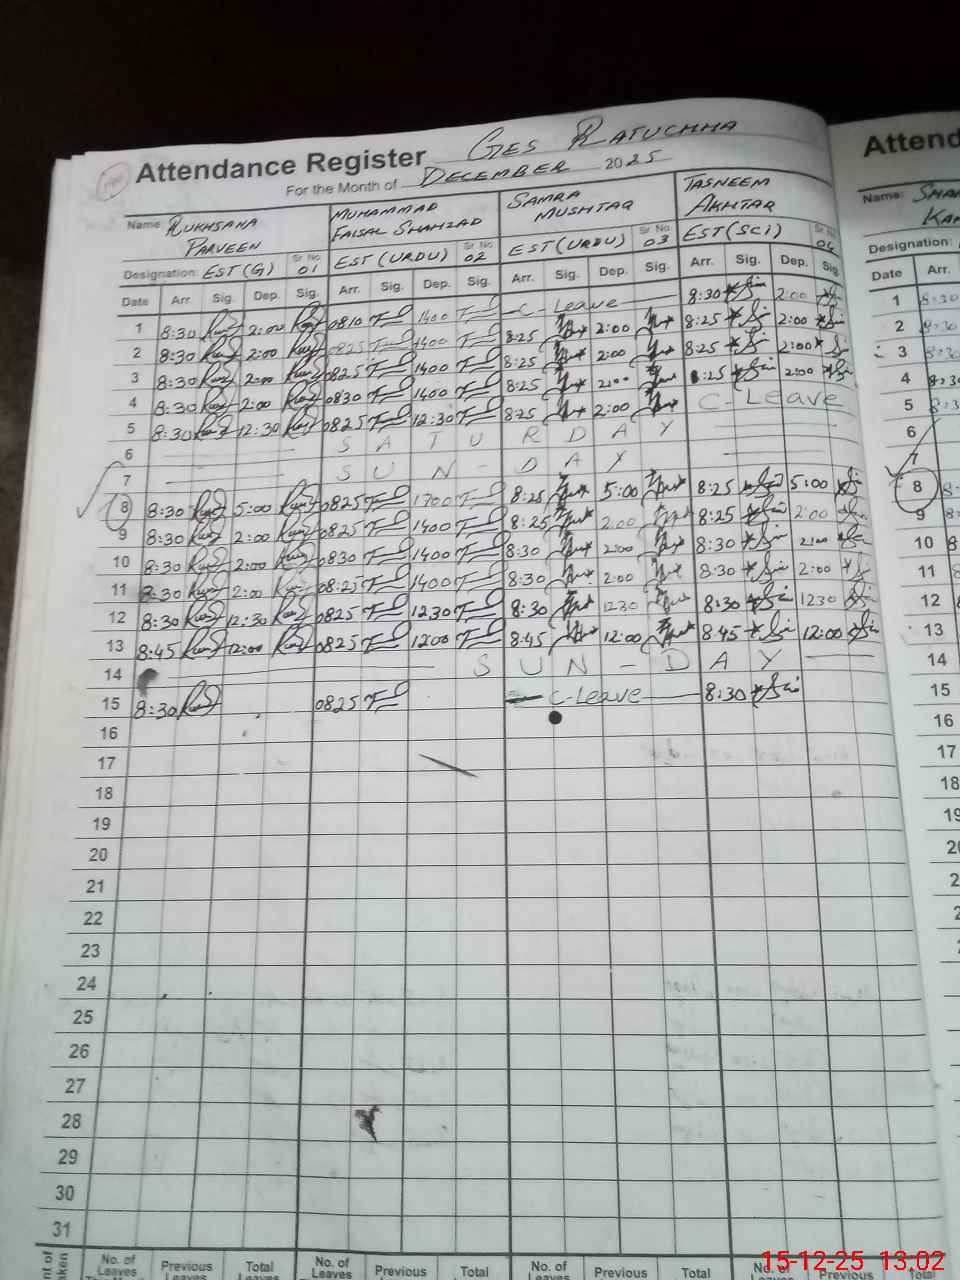 GES RATUCHHA
Attendance Register
For the Month of DECEMBER 2025
Name: RUKHSANA PARVEEN MUHAMMAD FAISAL SHAHZAD SAMRA MUSHTAQ TASNEEM AKHTAR
Designation: EST (G) Sr. No 01 EST (URDU) Sr. No 02 EST (URDU) Sr. No 03 EST (SCI) Sr. No 04
Date Arr. Sig. Dep. Sig. Arr. Sig. Dep. Sig. Arr. Sig. Dep. Sig. Arr. Sig. Dep. Sig
1 8:30 2:00 0810 1400 C-Leave 8:30 2:00
2 8:30 2:00 0825 1400 8:25 2:00 8:25 2:00
3 8:30 2:00 0825 1400 8:25 2:00 8:25 2:00
4 8:30 2:00 0830 1400 8:25 2:00 8:25 2:00
5 8:30 12:30 0825 12:30 8:25 2:00 C-Leave
6 SATURDAY
7 SUN-DAY
8 8:30 5:00 0825 1700 8:25 5:00 8:25 5:00
9 8:30 2:00 0825 1400 8:25 2:00 8:25 2:00
10 8:30 2:00 0830 1400 8:30 2:00 8:30 2:00
11 8:30 2:00 08:25 1400 8:30 2:00 8:30 2:00
12 8:30 12:30 0825 1230 8:30 1230 8:30 1230
13 8:45 12:00 0825 1200 8:45 12:00 8:45 12:00
14 SUN-DAY
15 8:30 0825 C-Leave 8:30
16
17
18
19
20
21
22
23
24
25
26
27
28
29
30
31
No. of Leaves Previous Total No. of Leaves Previous Total No. of Leaves Previous Total
Attend
Name:
Designation:
Date Arr.
1 8:30
2 8:30
3 8:30
4 8:30
5
6
7
8
9
10
11
12
13
14
15
16
17
18
19
15-12-25 13.02